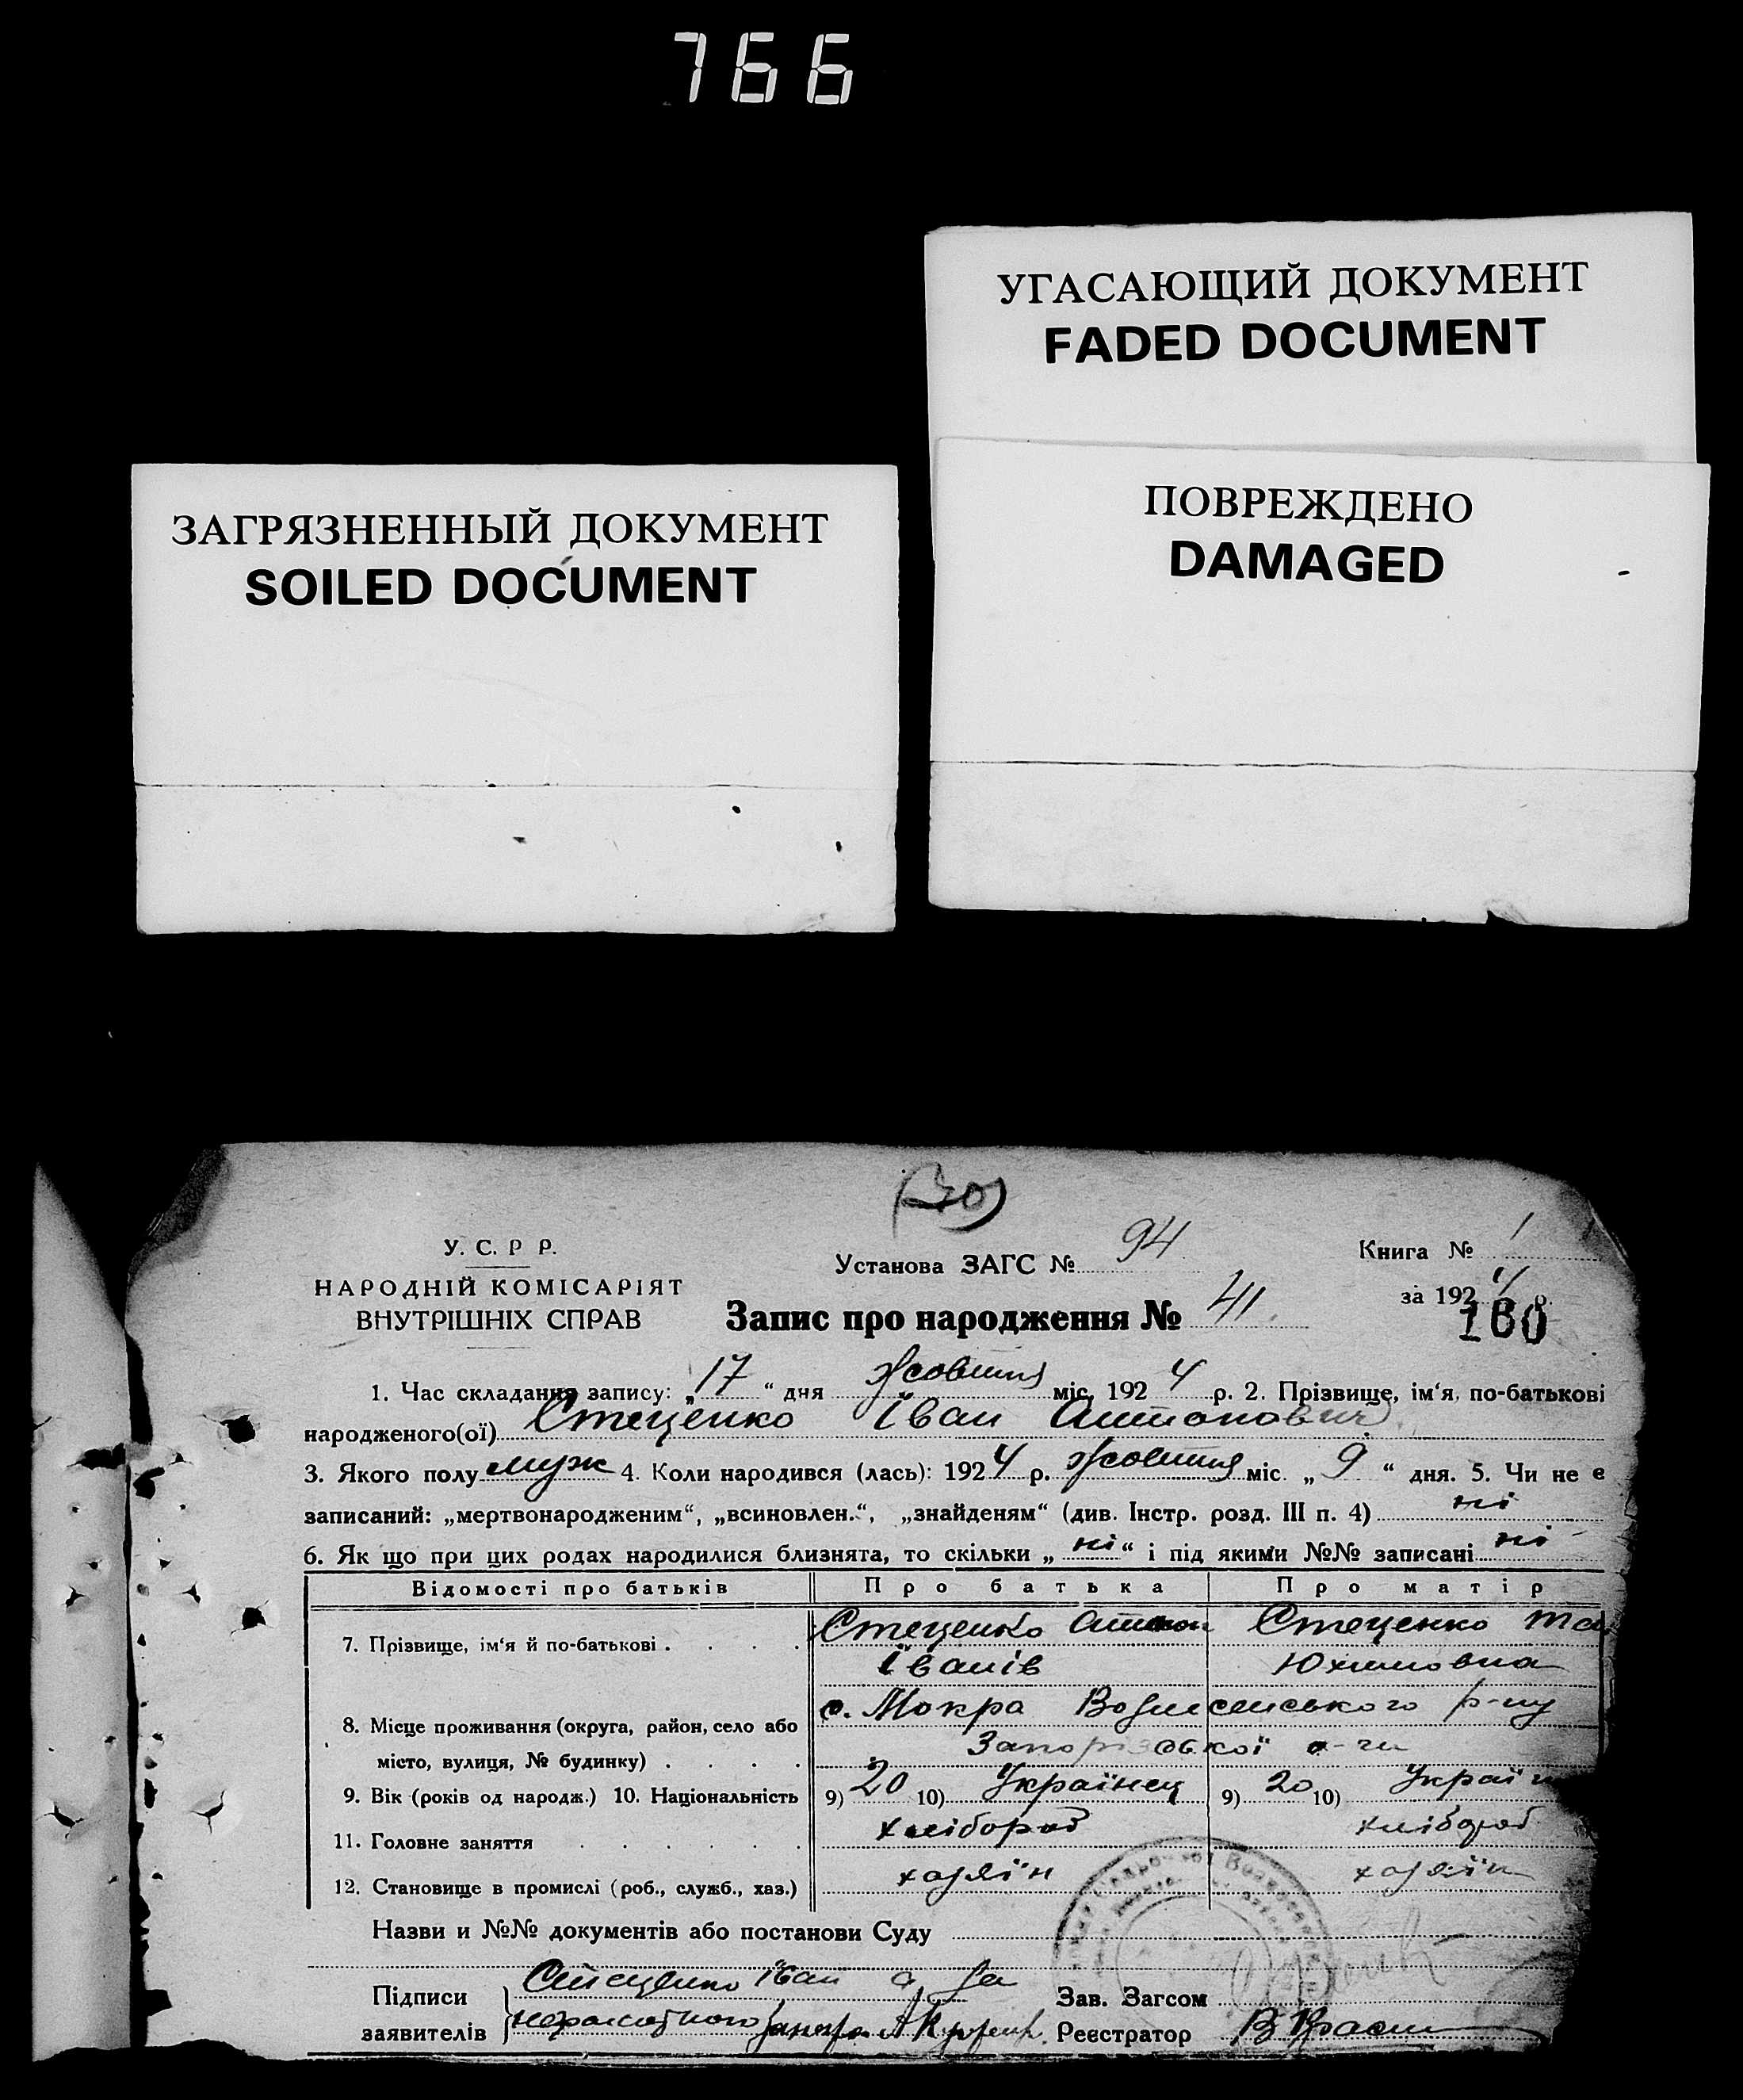 766
УГАСАЮЩИЙ ДОКУМЕНТ
FADED DOCUMENT
ЗАГРЯЗНЕННЫЙ ДОКУМЕНТ
SOILED DOCUMENT
ПОВРЕЖДЕНО
DAMAGED
У. С. Р Р.
НАРОДНІЙ КОМІСАРІЯТ
ВНУТРІШНІХ СПРАВ
Установа ЗАГС № 94
Книга № 1
за 1924 р.
160
Запис про народження № 41.
1. Час складання запису: „17“ дня Жовтня міс. 1924 р. 2. Прізвище, ім‘я, по-батькові
народженого(ої) Стеценко Іван Антонович.
3. Якого полу муж 4. Коли народився (лась): 1924 р. Жовтня міс. „9“ дня. 5. Чи не є
записаний: „мертвонародженим“, „всиновлен.“, „знайденям“ (див. Інстр. розд. III п. 4) ні
6. Як що при цих родах народилися близнята, то скільки „ні“ і під якими №№ записані ні
Відомості про батьків Про батька Про матір
7. Прізвище, ім‘я й по-батькові . . . . Стеценко Антон Стеценко
Іванів Юхимовна
с. Мокра Вознесенського р-ну
8. Місце проживання (округа, район, село або
місто, вулиця, № будинку) . . . . Запорізської
9. Вік (років од народж.) 10. Національність 9) 20 10) Українец 9) 20 10)
11. Головне заняття . . . . . . хлібороб хлібороб
12. Становище в промислі (роб., служб., хаз.) хазяїн хазяїн
Назви и №№ документів або постанови Суду
Підписи
заявителів
Стеценко Іван а за
неграмотного
Зав. Загсом
Реєстратор